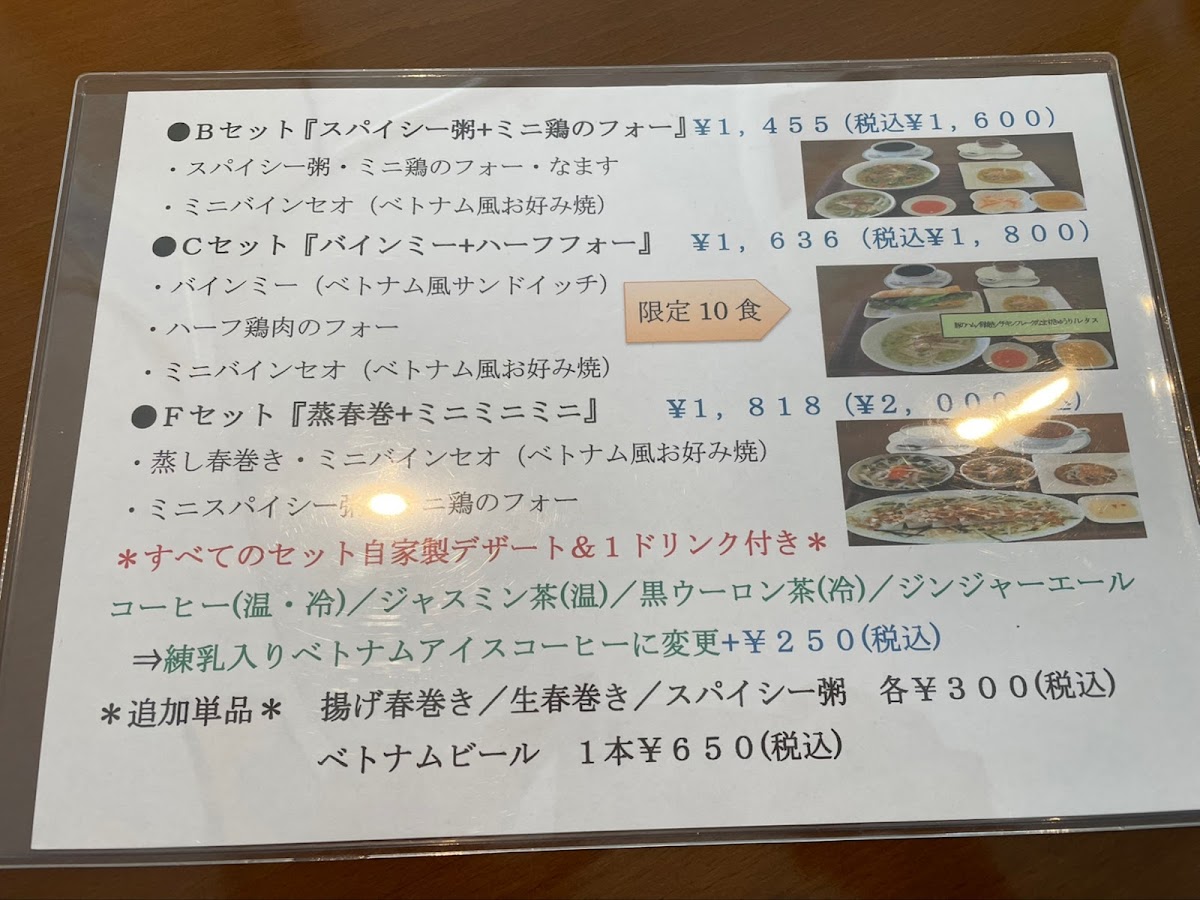 ●Bセット『スパイシー粥+ミニ鶏のフォー』¥1,455(税込¥1,600)
・スパイシー粥・ミニ鶏のフォー・なます
・ミニバインセオ(ベトナム風お好み焼)
●Cセット『バインミー+ハーフフォー』 ¥1,636(税込¥1,800)
・バインミー(ベトナム風サンドイッチ)
限定10食
・ハーフ鶏肉のフォー
・ミニバインセオ(ベトナム風お好み焼)
●Fセット『蒸春巻+ミニミニミニ』 ¥1,818(¥2,000
・蒸し春巻き・ミニバインセオ(ベトナム風お好み焼)
・ミニスパイシー粥 ニ鶏のフォー
＊すべてのセット自家製デザート&1ドリンク付き＊
コーヒー(温・冷)／ジャスミン茶(温)／黒ウーロン茶(冷)／ジンジャーエール
⇒練乳入りベトナムアイスコーヒーに変更+¥250(税込)
＊追加単品＊ 揚げ春巻き／生春巻き／スパイシー粥 各¥300(税込)
ベトナムビール 1本¥650(税込)